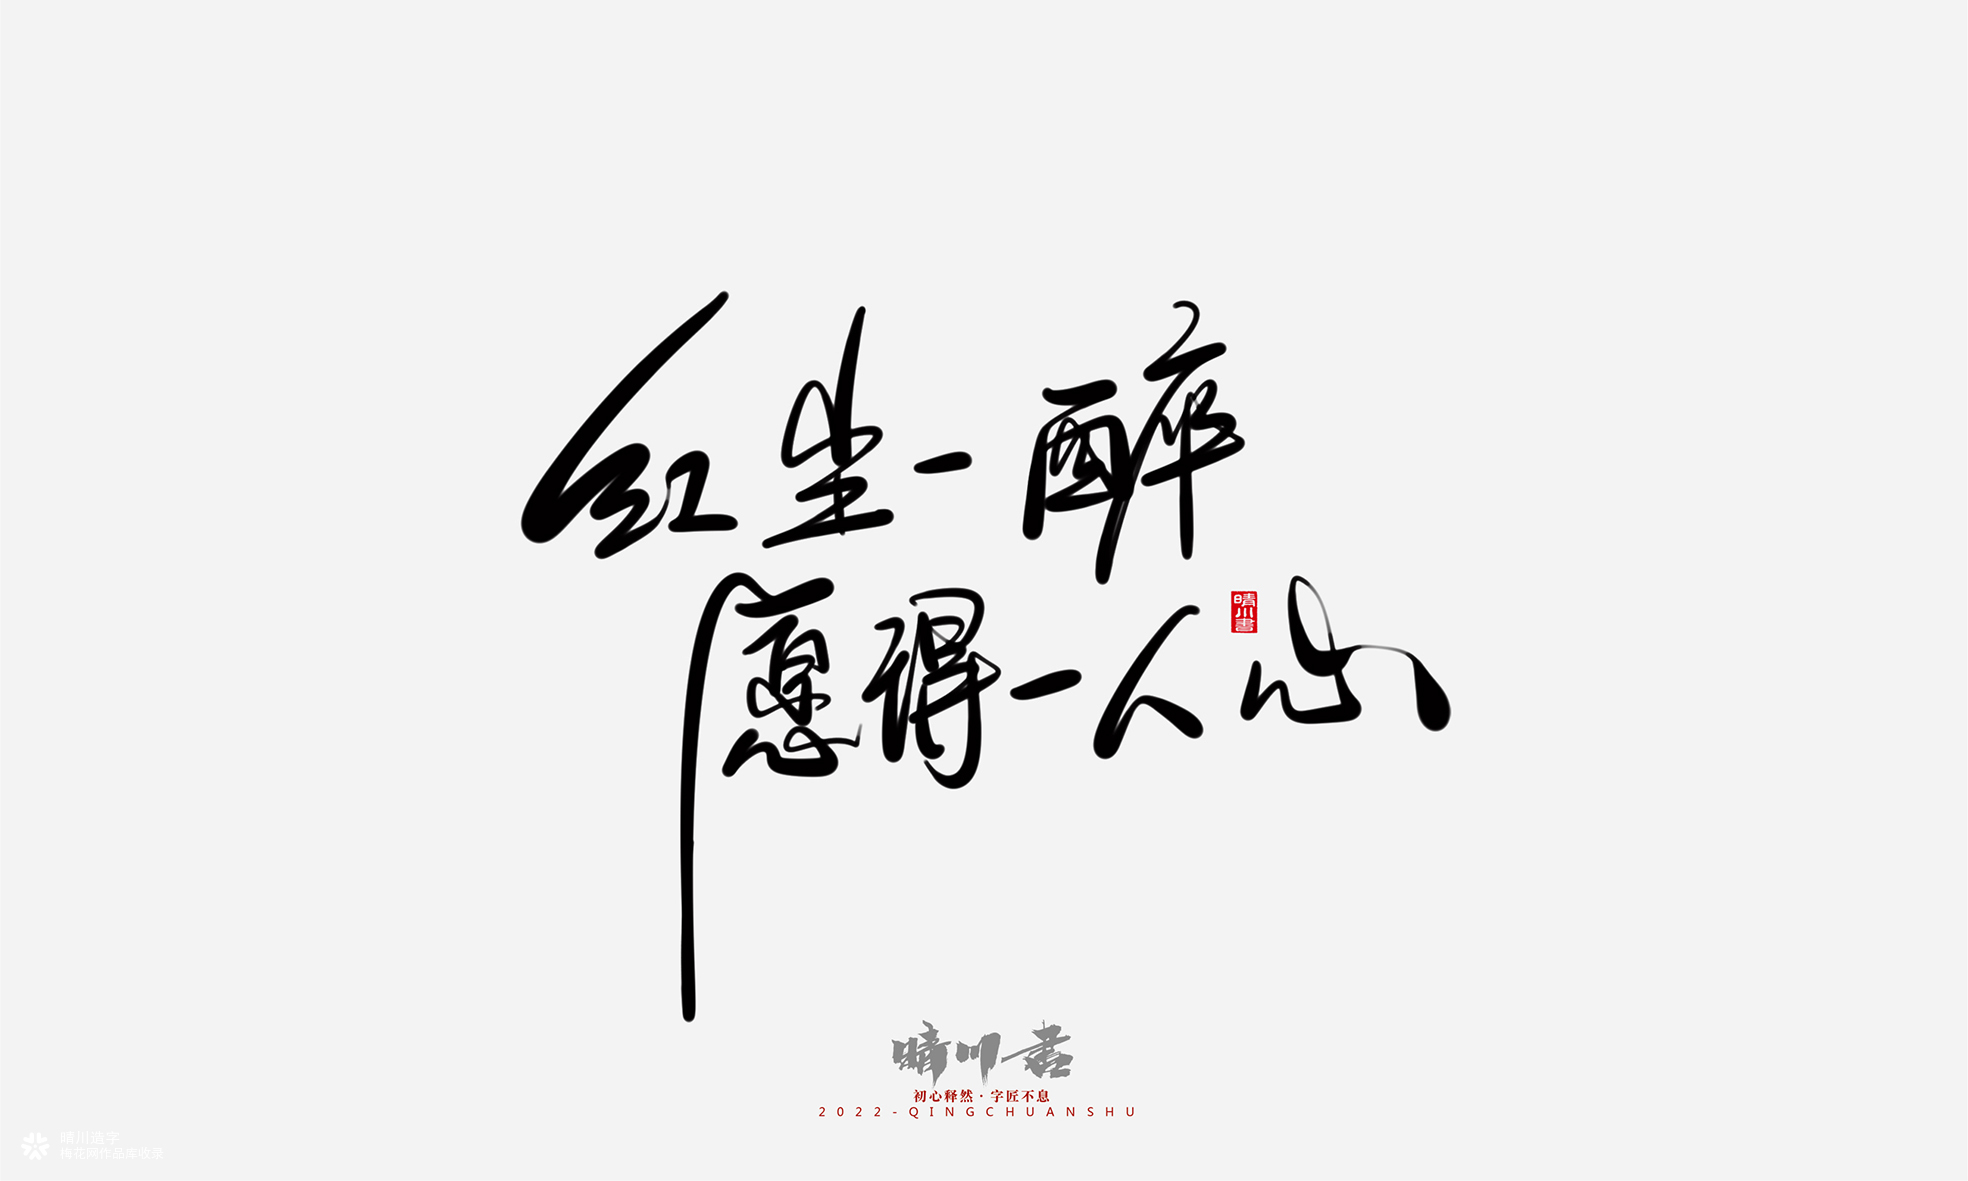 红尘一醉
愿得一人心
晴川書
晴川书
初心释然·字匠不息
2022-QINGCHUANSHU
晴川造字
梅花网作品库收录